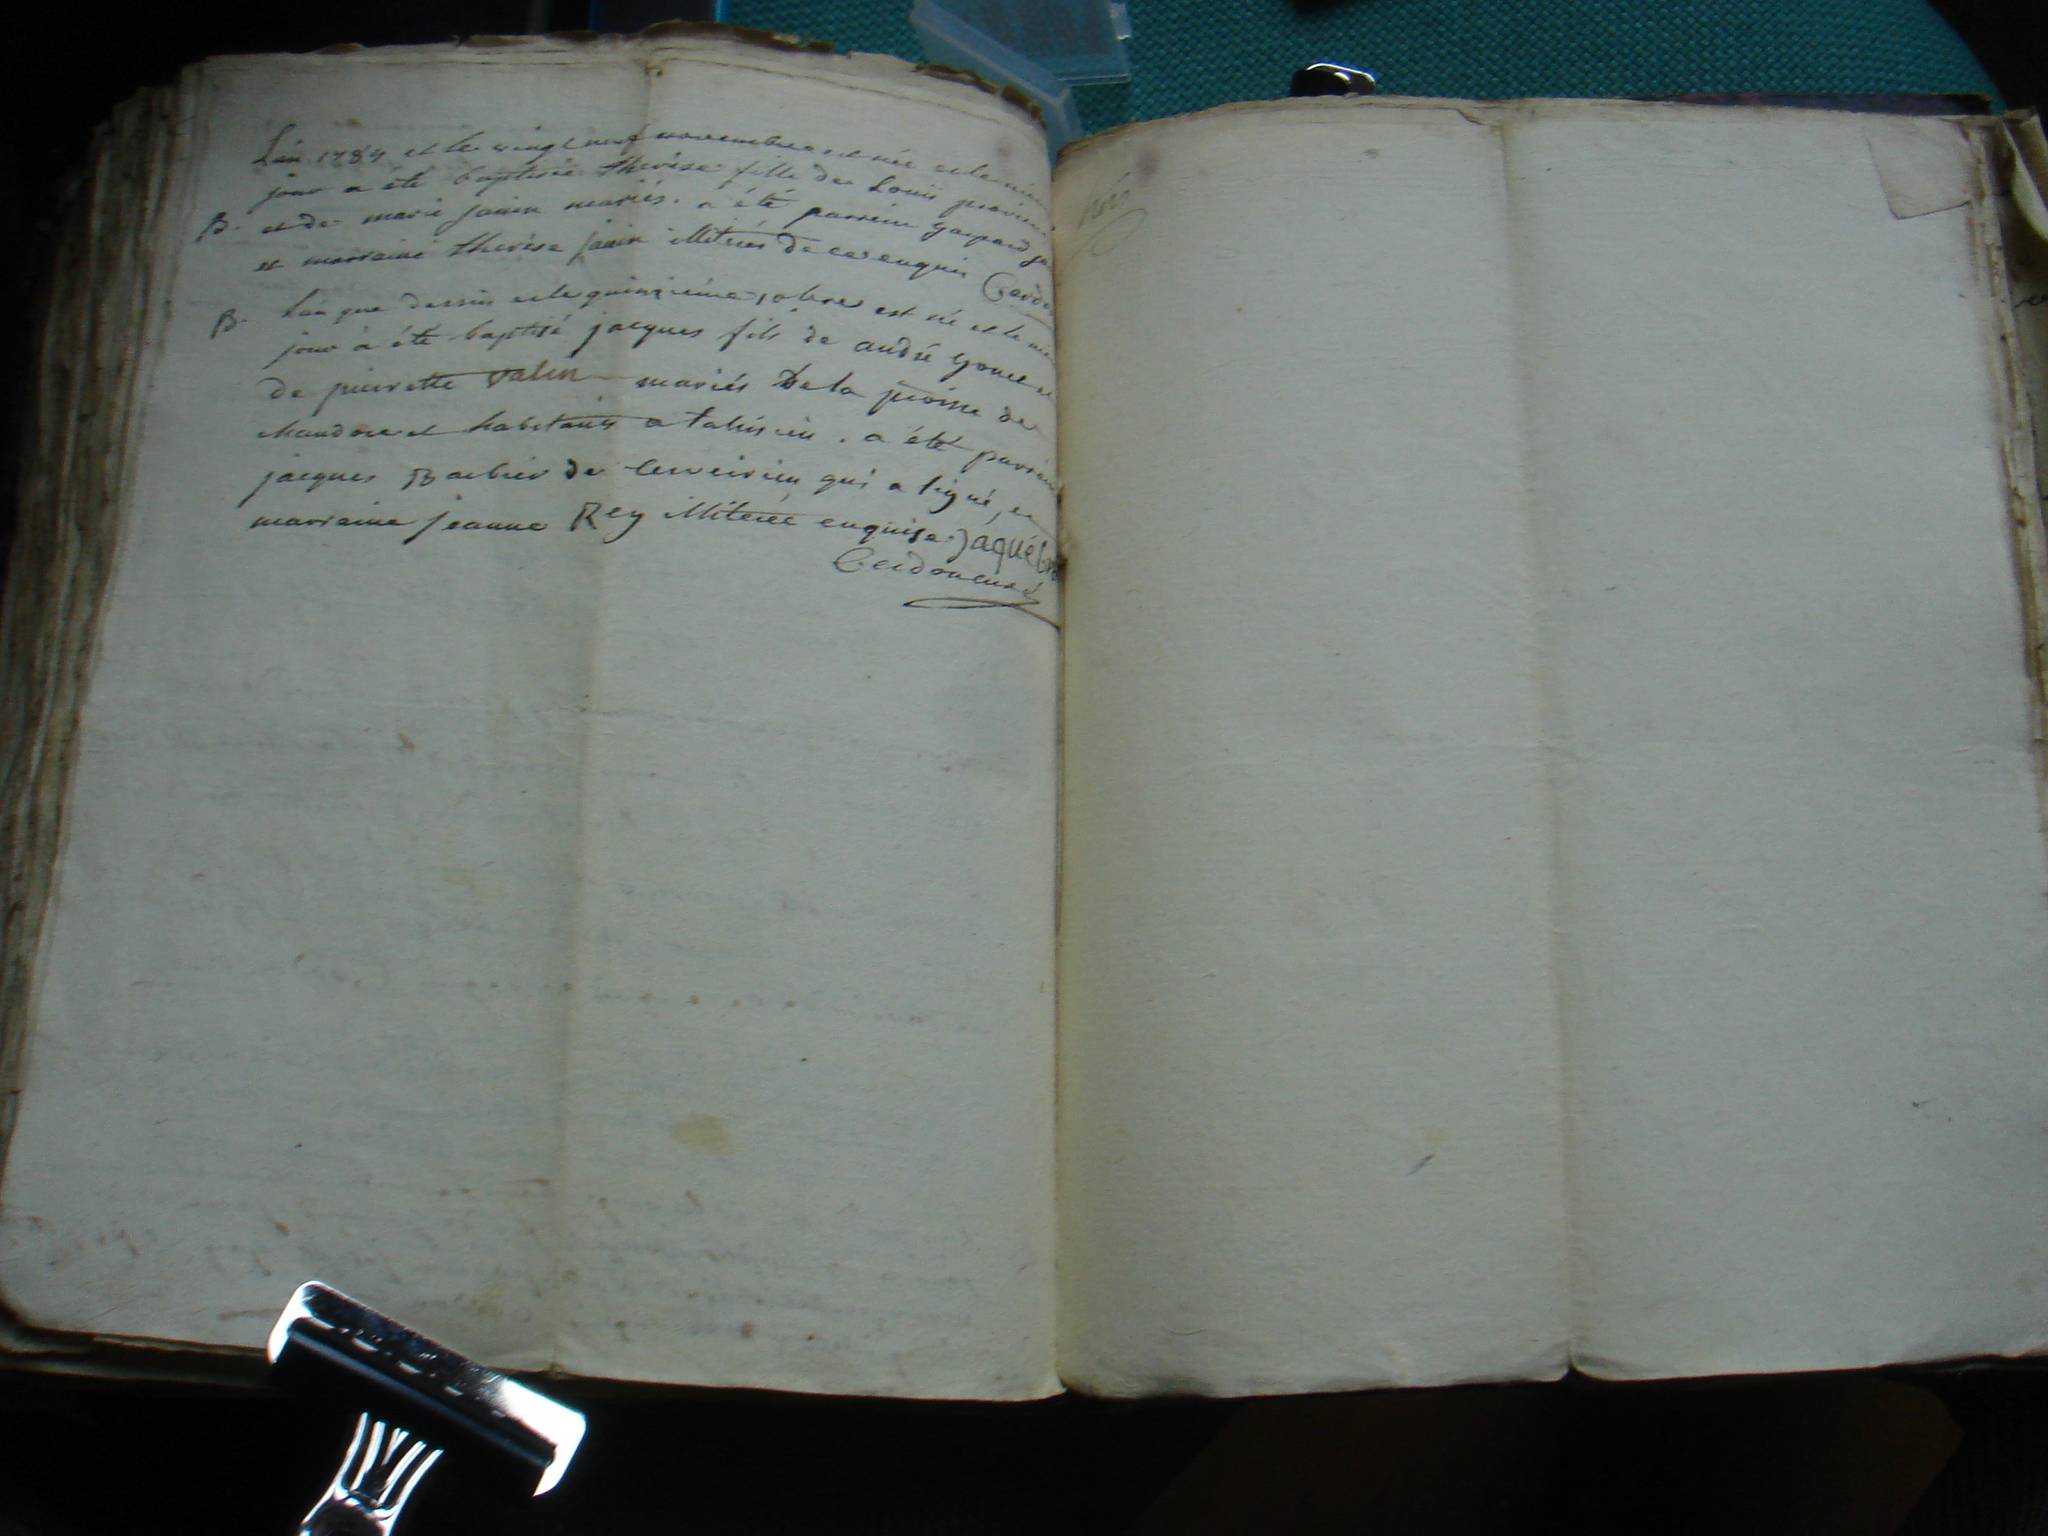 L'an 1784 et le vingt neuf novembre est née et le même
jour a été baptisée therése fille de Louis
B. et de marie janin mariés. a été parrein gaspard
et marraine therése janin illiterés de ce enquis Cerdo
B. L'an que dessus et le quinzieme xbre est né et le me
jour à été baptisé jacques fils de andré gonet et
de pierrette valin mariés De la proisse de
chandore et habitants a talissieu. a été parrein
jacques Barbier de Ceveirieu qui a signé, et
marraine jeanne Rey illiterée enquise. jaque
Cerdon curé